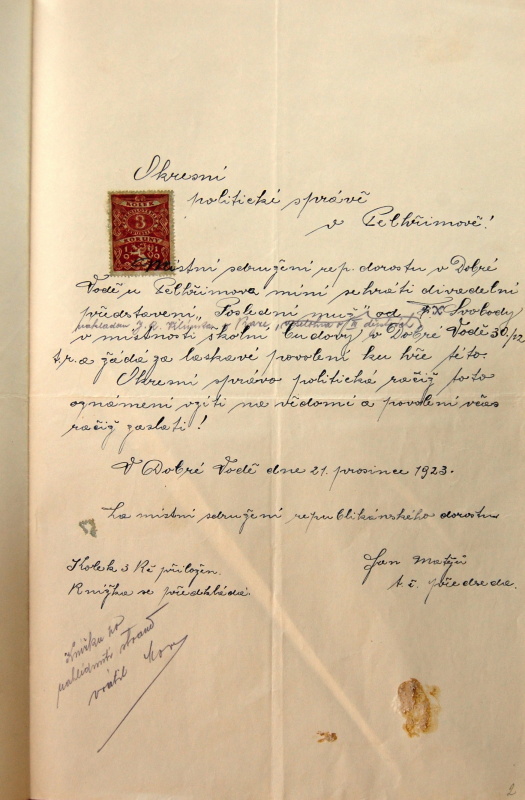 Okresní
politické správě
v Pelhřimově!
KOLEK
3
KORUNY
Místní sdružení rep. dorostu v Dobré
Vodě u Pelhřimova míní sehráti divadelní
představení „Poslední muž" od F. X. Svobody
nákladem
v místnosti školní budovy v Dobré Vodě 30./12
t.r. a žádá za laskavé povolení ku hře této.
Okresní správo politická račiž toto
oznámení vzíti na vědomí a povolení včas
račiž zaslati!
V Dobré Vodě dne 21. prosince 1923.
Za místní sdružení republikánského dorostu
Kolek 3 Kč přiložen.
Jan Matějů
Knížka se předkládá.
t. č. předseda.
Knížku po
nahlédnutí
vrátil
2